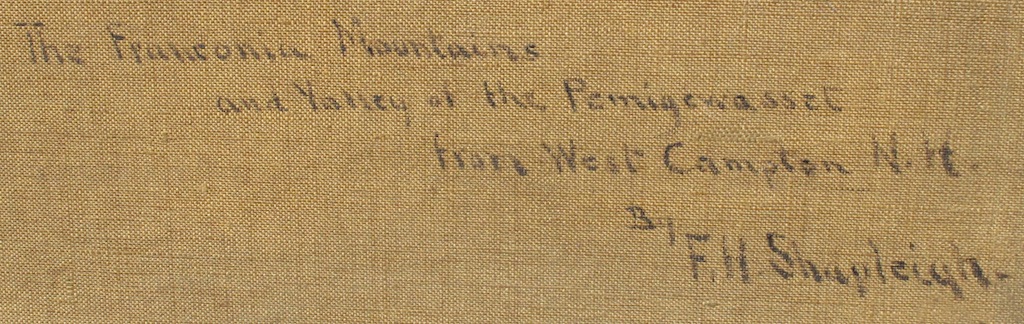 The Franconia Mountains
and Valley of the Pemigewasset
from West Campton N.H.
By
F.H. Shapleigh.